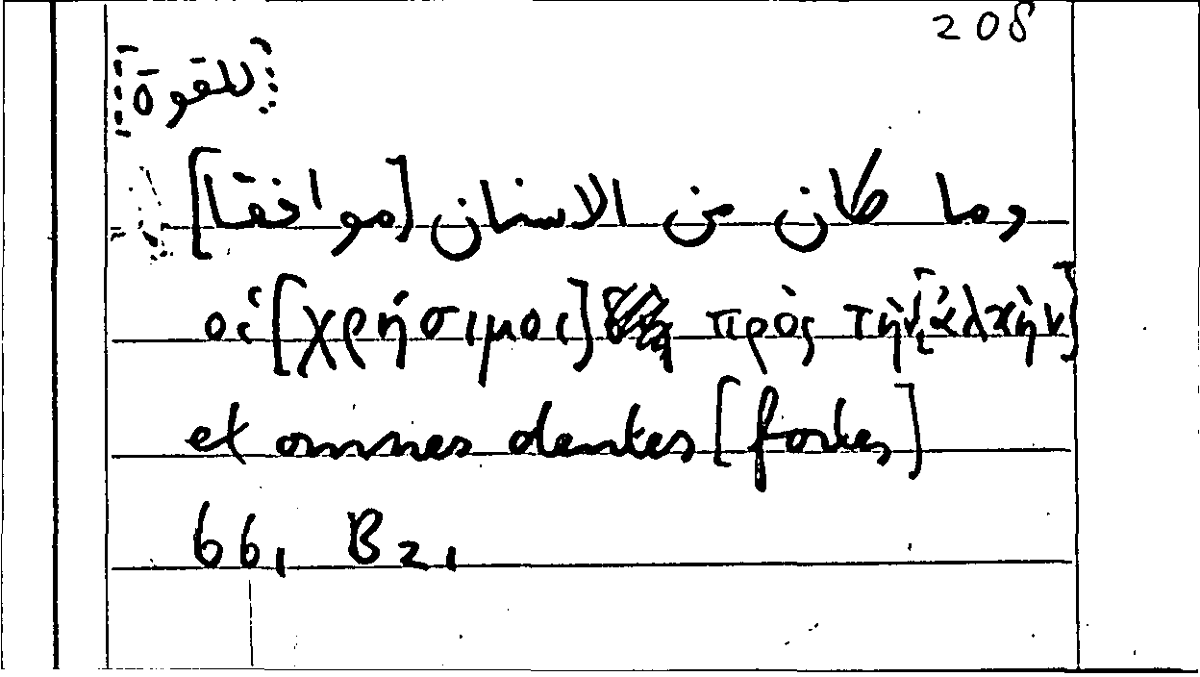 208
للقوة
وما كان من الاسنان [موافقا]
οἱ [χρήσιμοι] πρὸς τὴν [ἀλκὴν]
et omnes dentes [fortes]
661 B2,